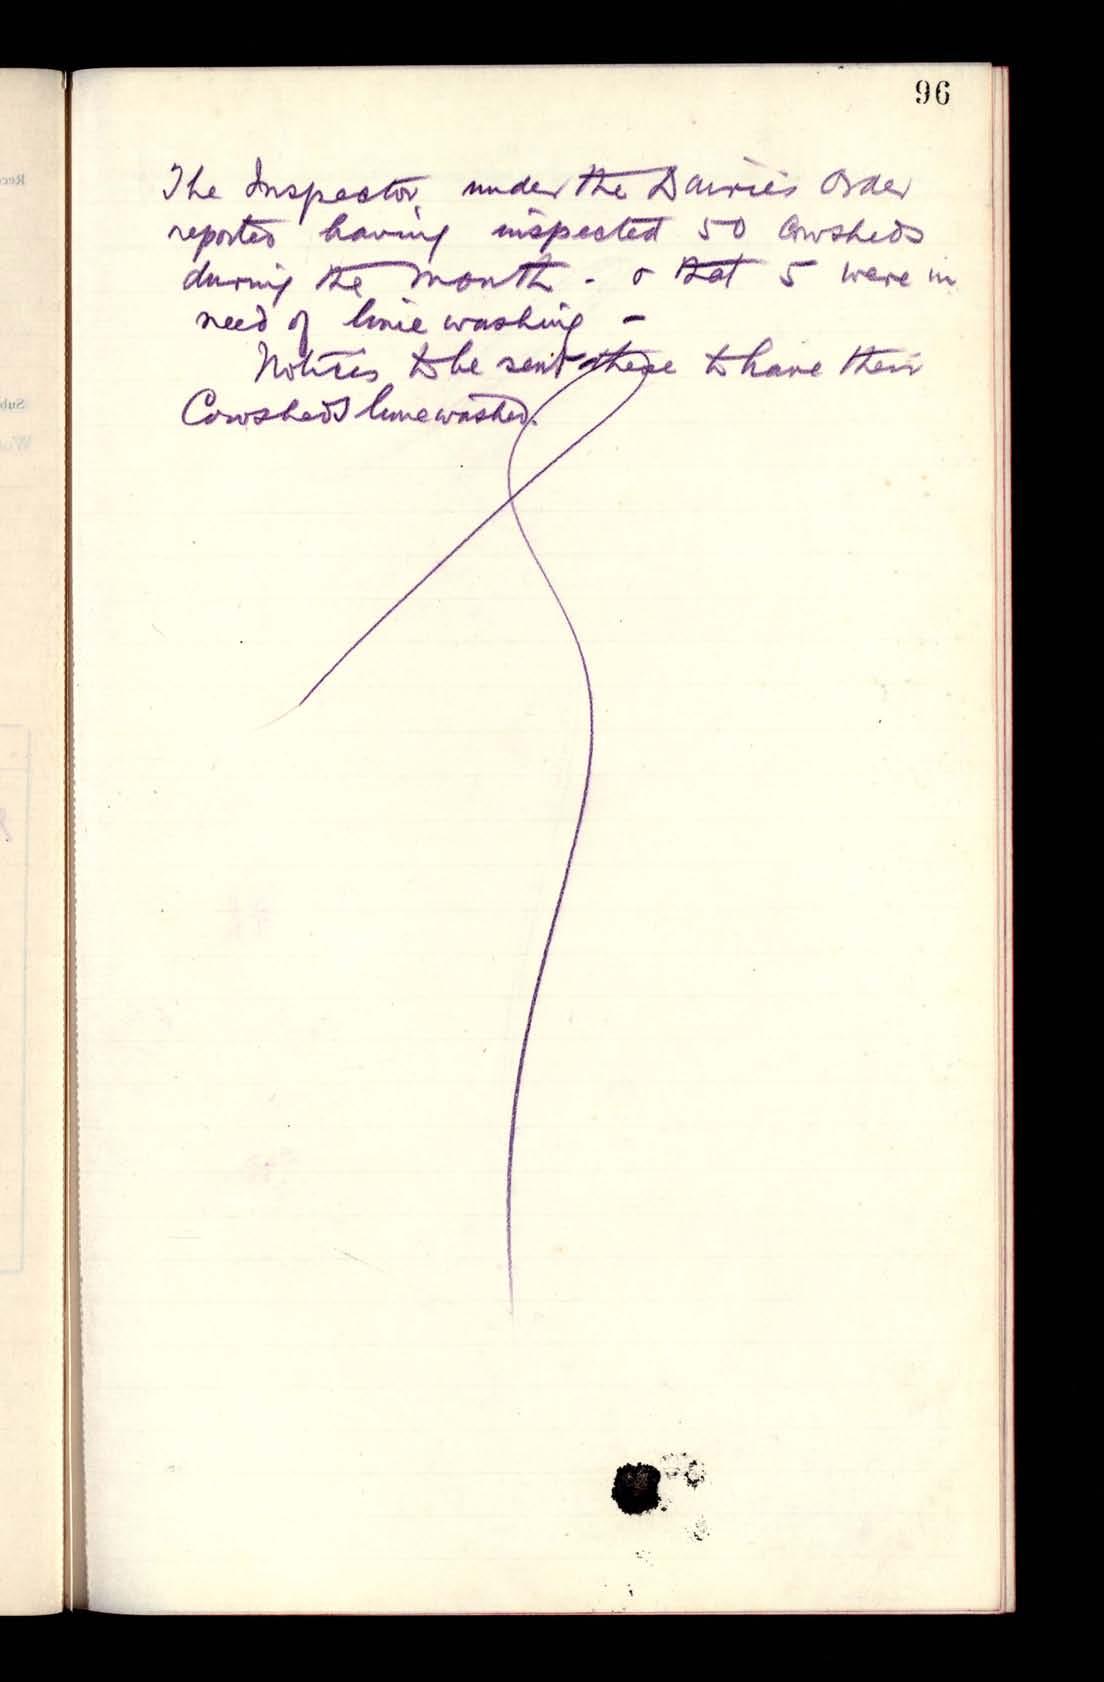 96
The Inspector under the Dairies Order
reported having inspected 50 Cowsheds
during the month - & that 5 were in
need of lime washing -
Notices to be sent these to have their
Cowsheds limewashed.